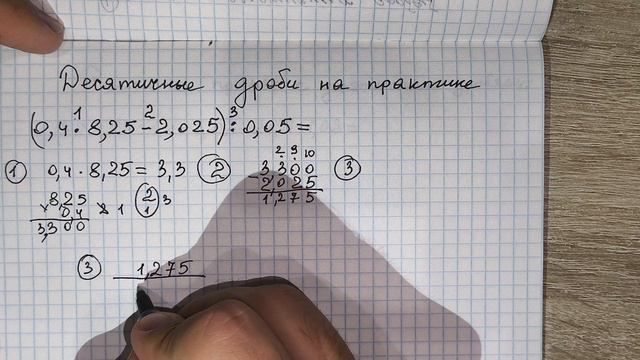 Десятичные дроби на практике
1 2 3
(0,4 · 8,25 - 2,025) : 0,05 =
① 0,4 · 8,25 = 3,3 ② 3,300 ③
2 9 10
- 2,025
1,275
8,25
× 0,4
3,300
1 2 3
1
③ 1,275